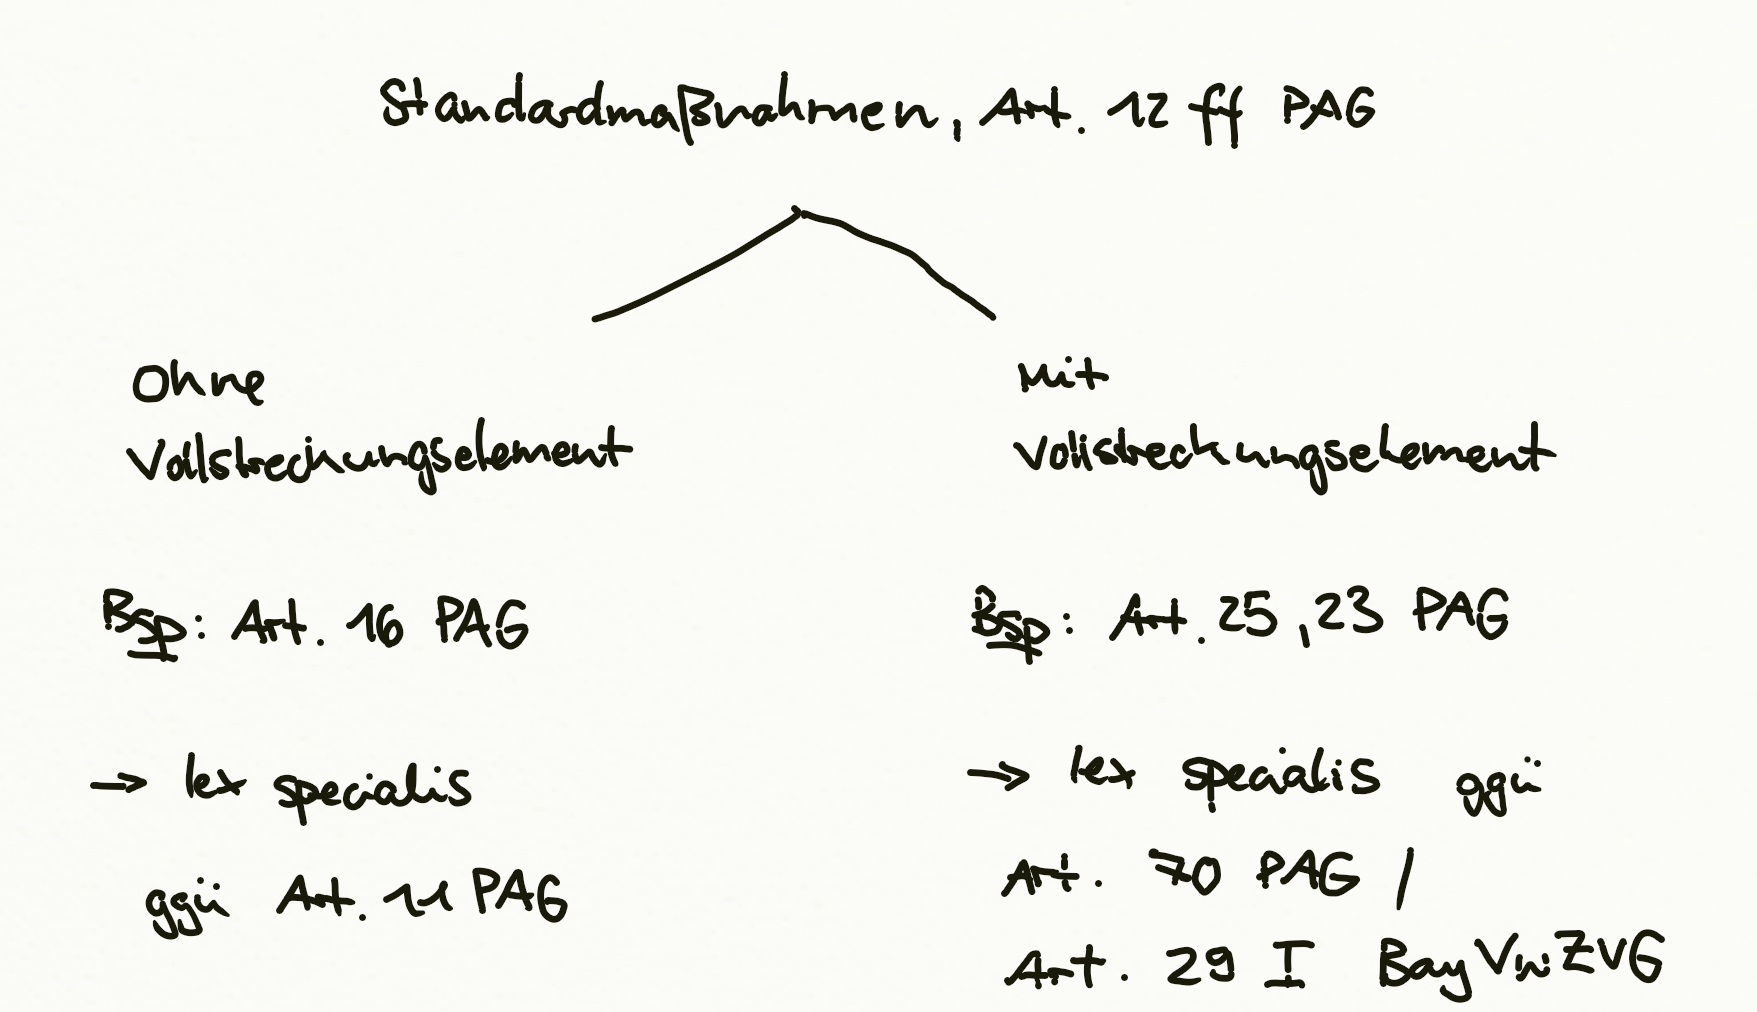 Standardmaßnahmen, Art. 12 ff PAG
Ohne
Vollstreckungselement
Mit
Vollstreckungselement
Bsp: Art. 16 PAG
Bsp: Art. 25, 23 PAG
→ lex specialis
ggü Art. 11 PAG
→ lex specialis ggü
Art. 70 PAG /
Art. 29 I BayVwZVG